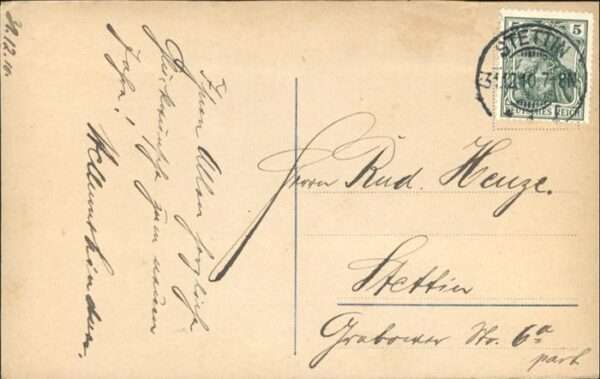 31.12.10.
Ihnen Allen herzliche
Glückwünsche zum neuen
Jahr!
5 5
DEUTSCHES REICH
STETTIN
31.12.10.7-8N.
Herrn Rud. Henze.
Stettin
Grabower Str. 6a
part